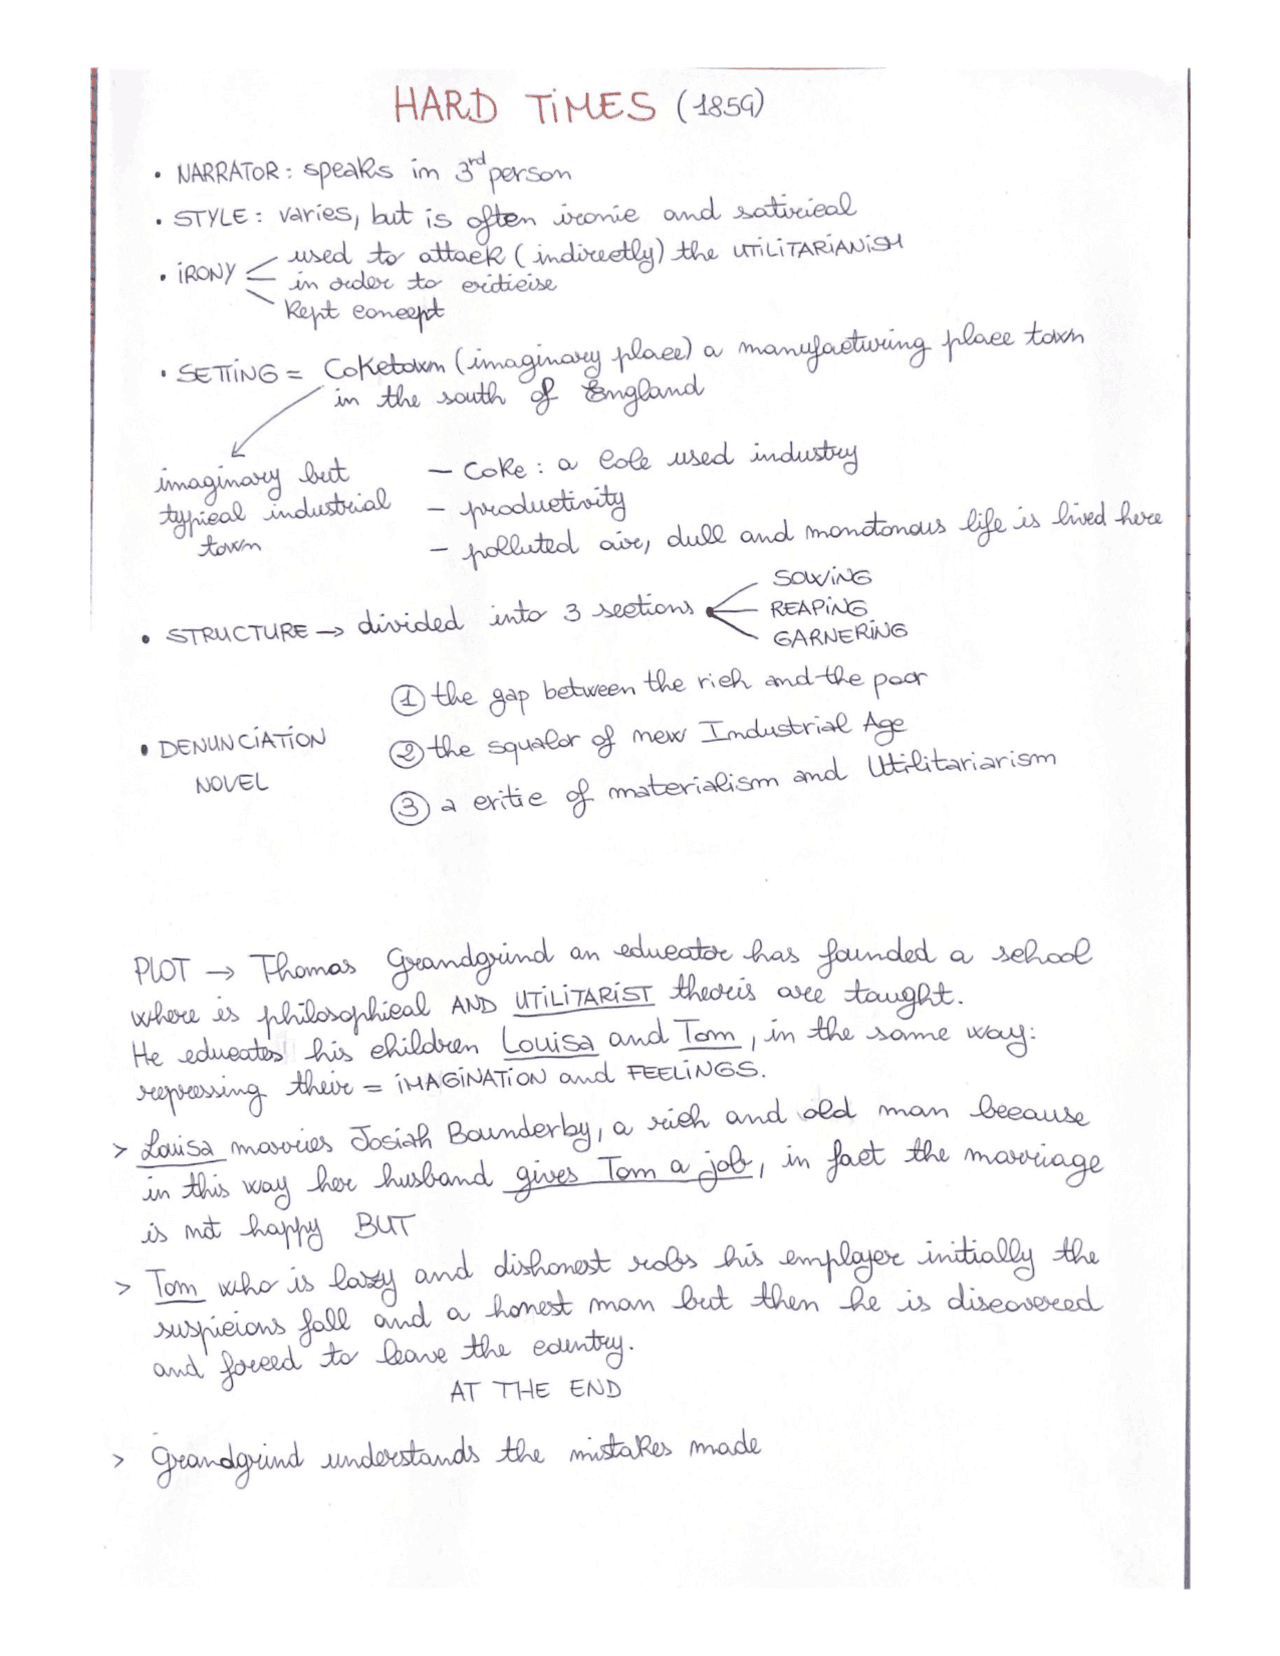 HARD TiMES (1859)
• NARRATOR: speaks in 3rd person
• STYLE: varies, but is often ironic and satirical
• iRONY used to attack (indirectly) the UTiLiTARiANiSH
in order to criticise
Kept concept
• SETTiNG = Coketown (imaginary place) a manufacturing place town
in the south of England
imaginary but
typical industrial
town
- Coke: a cole used industry
- productivity
- polluted air, dull and monotonous life is lived here
• STRUCTURE → divided into 3 sections
SOWiNG
REAPiNG
GARNERiNG
• DENUNCiATiON
NOVEL
① the gap between the rich and the poor
② the squalor of new Industrial Age
③ a critic of materialism and Utilitariarism
PLOT → Thomas Grandgrind an educator has founded a school
where is philosophical AND UTiLiTARiST theoris are taught.
He educates his children Louisa and Tom, in the same way:
repressing their = iMAGiNATiON and FEELiNGS.
> Louisa marries Josiah Bounderby, a rich and old man because
in this way her husband gives Tom a job, in fact the marriage
is not happy BUT
> Tom who is lazy and dishonest robs his employer initially the
suspicions fall and a honest man but then he is discovered
and forced to leave the country.
AT THE END
> Grandgrind understands the mistakes made